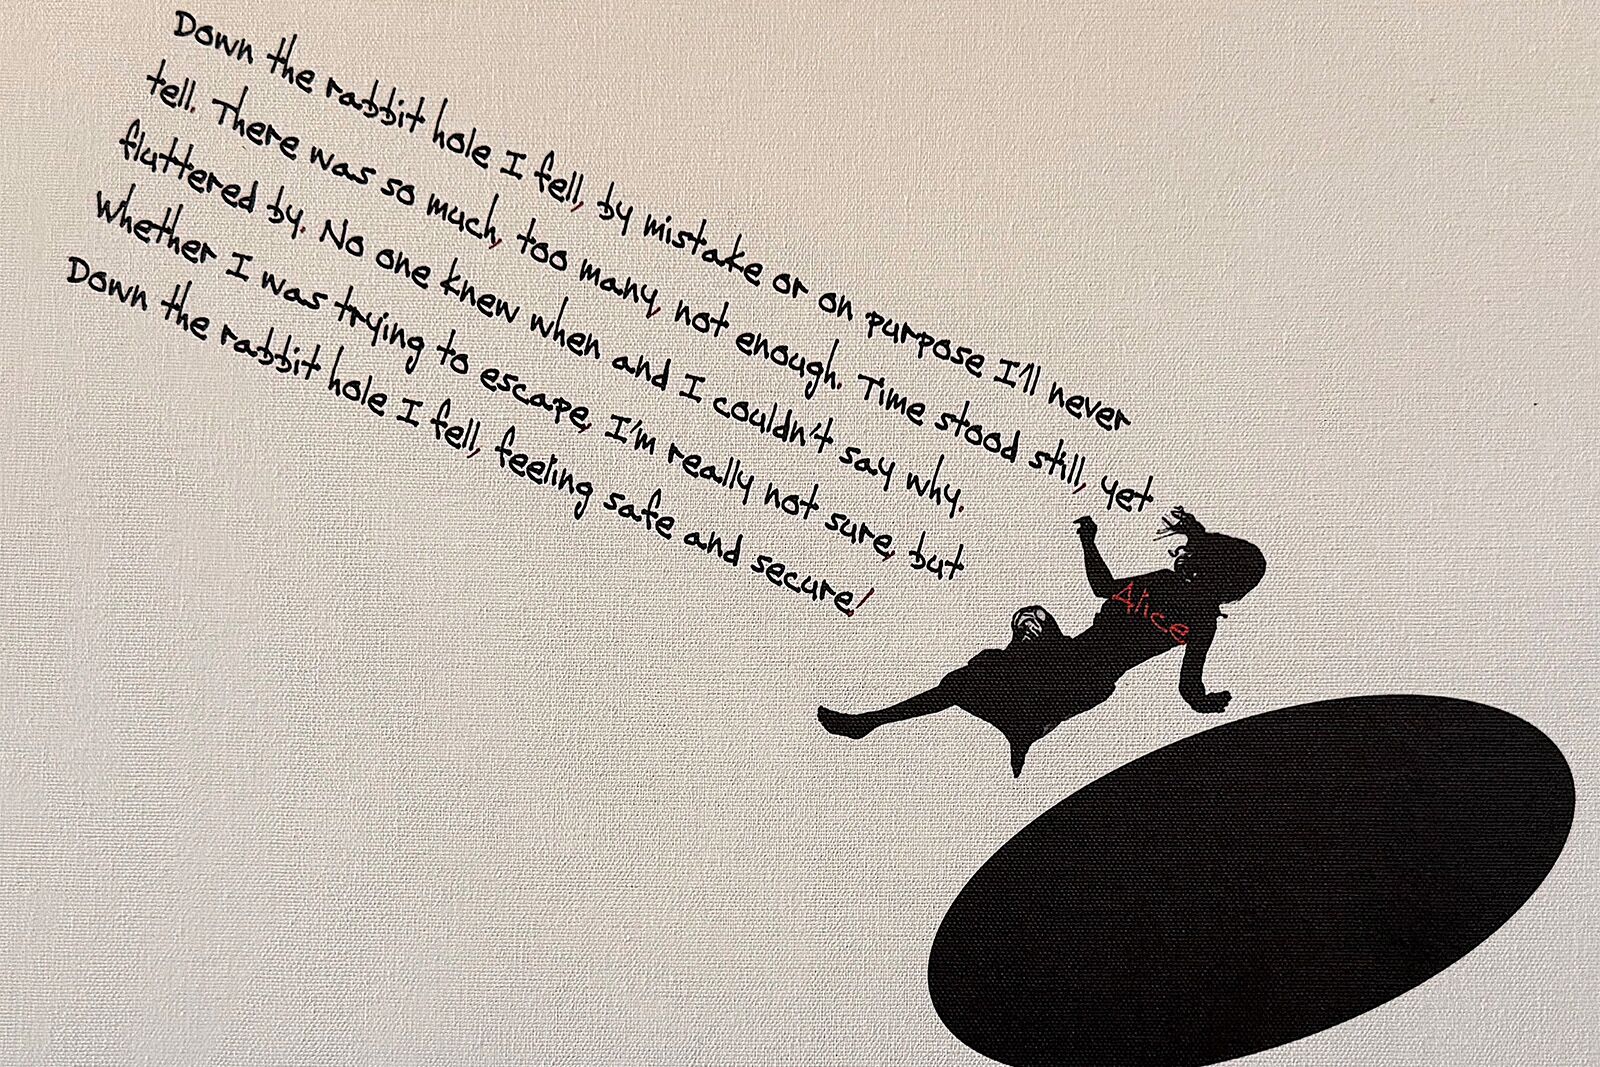 Down the rabbit hole I fell, by mistake or on purpose I'll never
tell. There was so much, too many, not enough. Time stood still, yet
fluttered by. No one knew when and I couldn't say why.
Whether I was trying to escape, I'm really not sure, but
Down the rabbit hole I fell, feeling safe and secure!
Alice